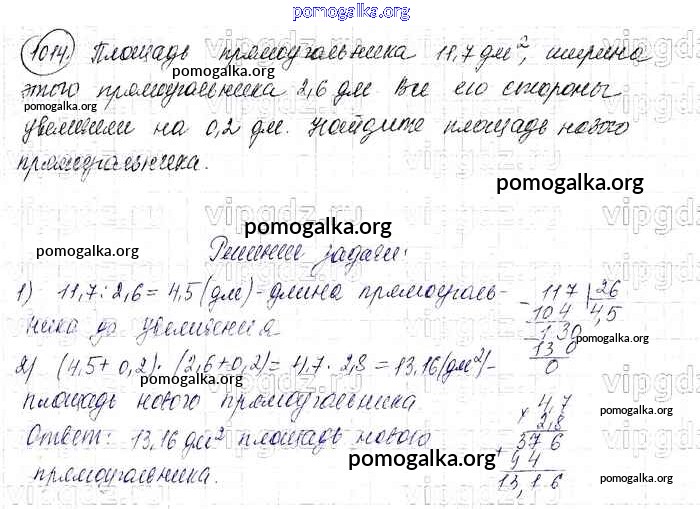 pomogalka.org
1014. Площадь прямоугольника 11,7 дм², ширина
pomogalka.org
этого прямоугольника 2,6 дм. Все его стороны
pomogalka.org
увеличили на 0,2 дм. Найдите площадь нового
прямоугольника.
pomogalka.org
pomogalka.org
pomogalka.org
Решение задачи:
1) 11,7 : 2,6 = 4,5 (дм) - длина прямоуголь-
ника до увеличения
2) (4,5 + 0,2) · (2,6 + 0,2) = 4,7 · 2,8 = 13,16 (дм²) -
площадь нового прямоугольника
Ответ: 13,16 дм² площадь нового
прямоугольника.
- 117 | 26
104 4,5
- 130
130
0
pomogalka.org
× 4,7
2,8
376
+ 94
13,16
pomogalka.org
pomogalka.org